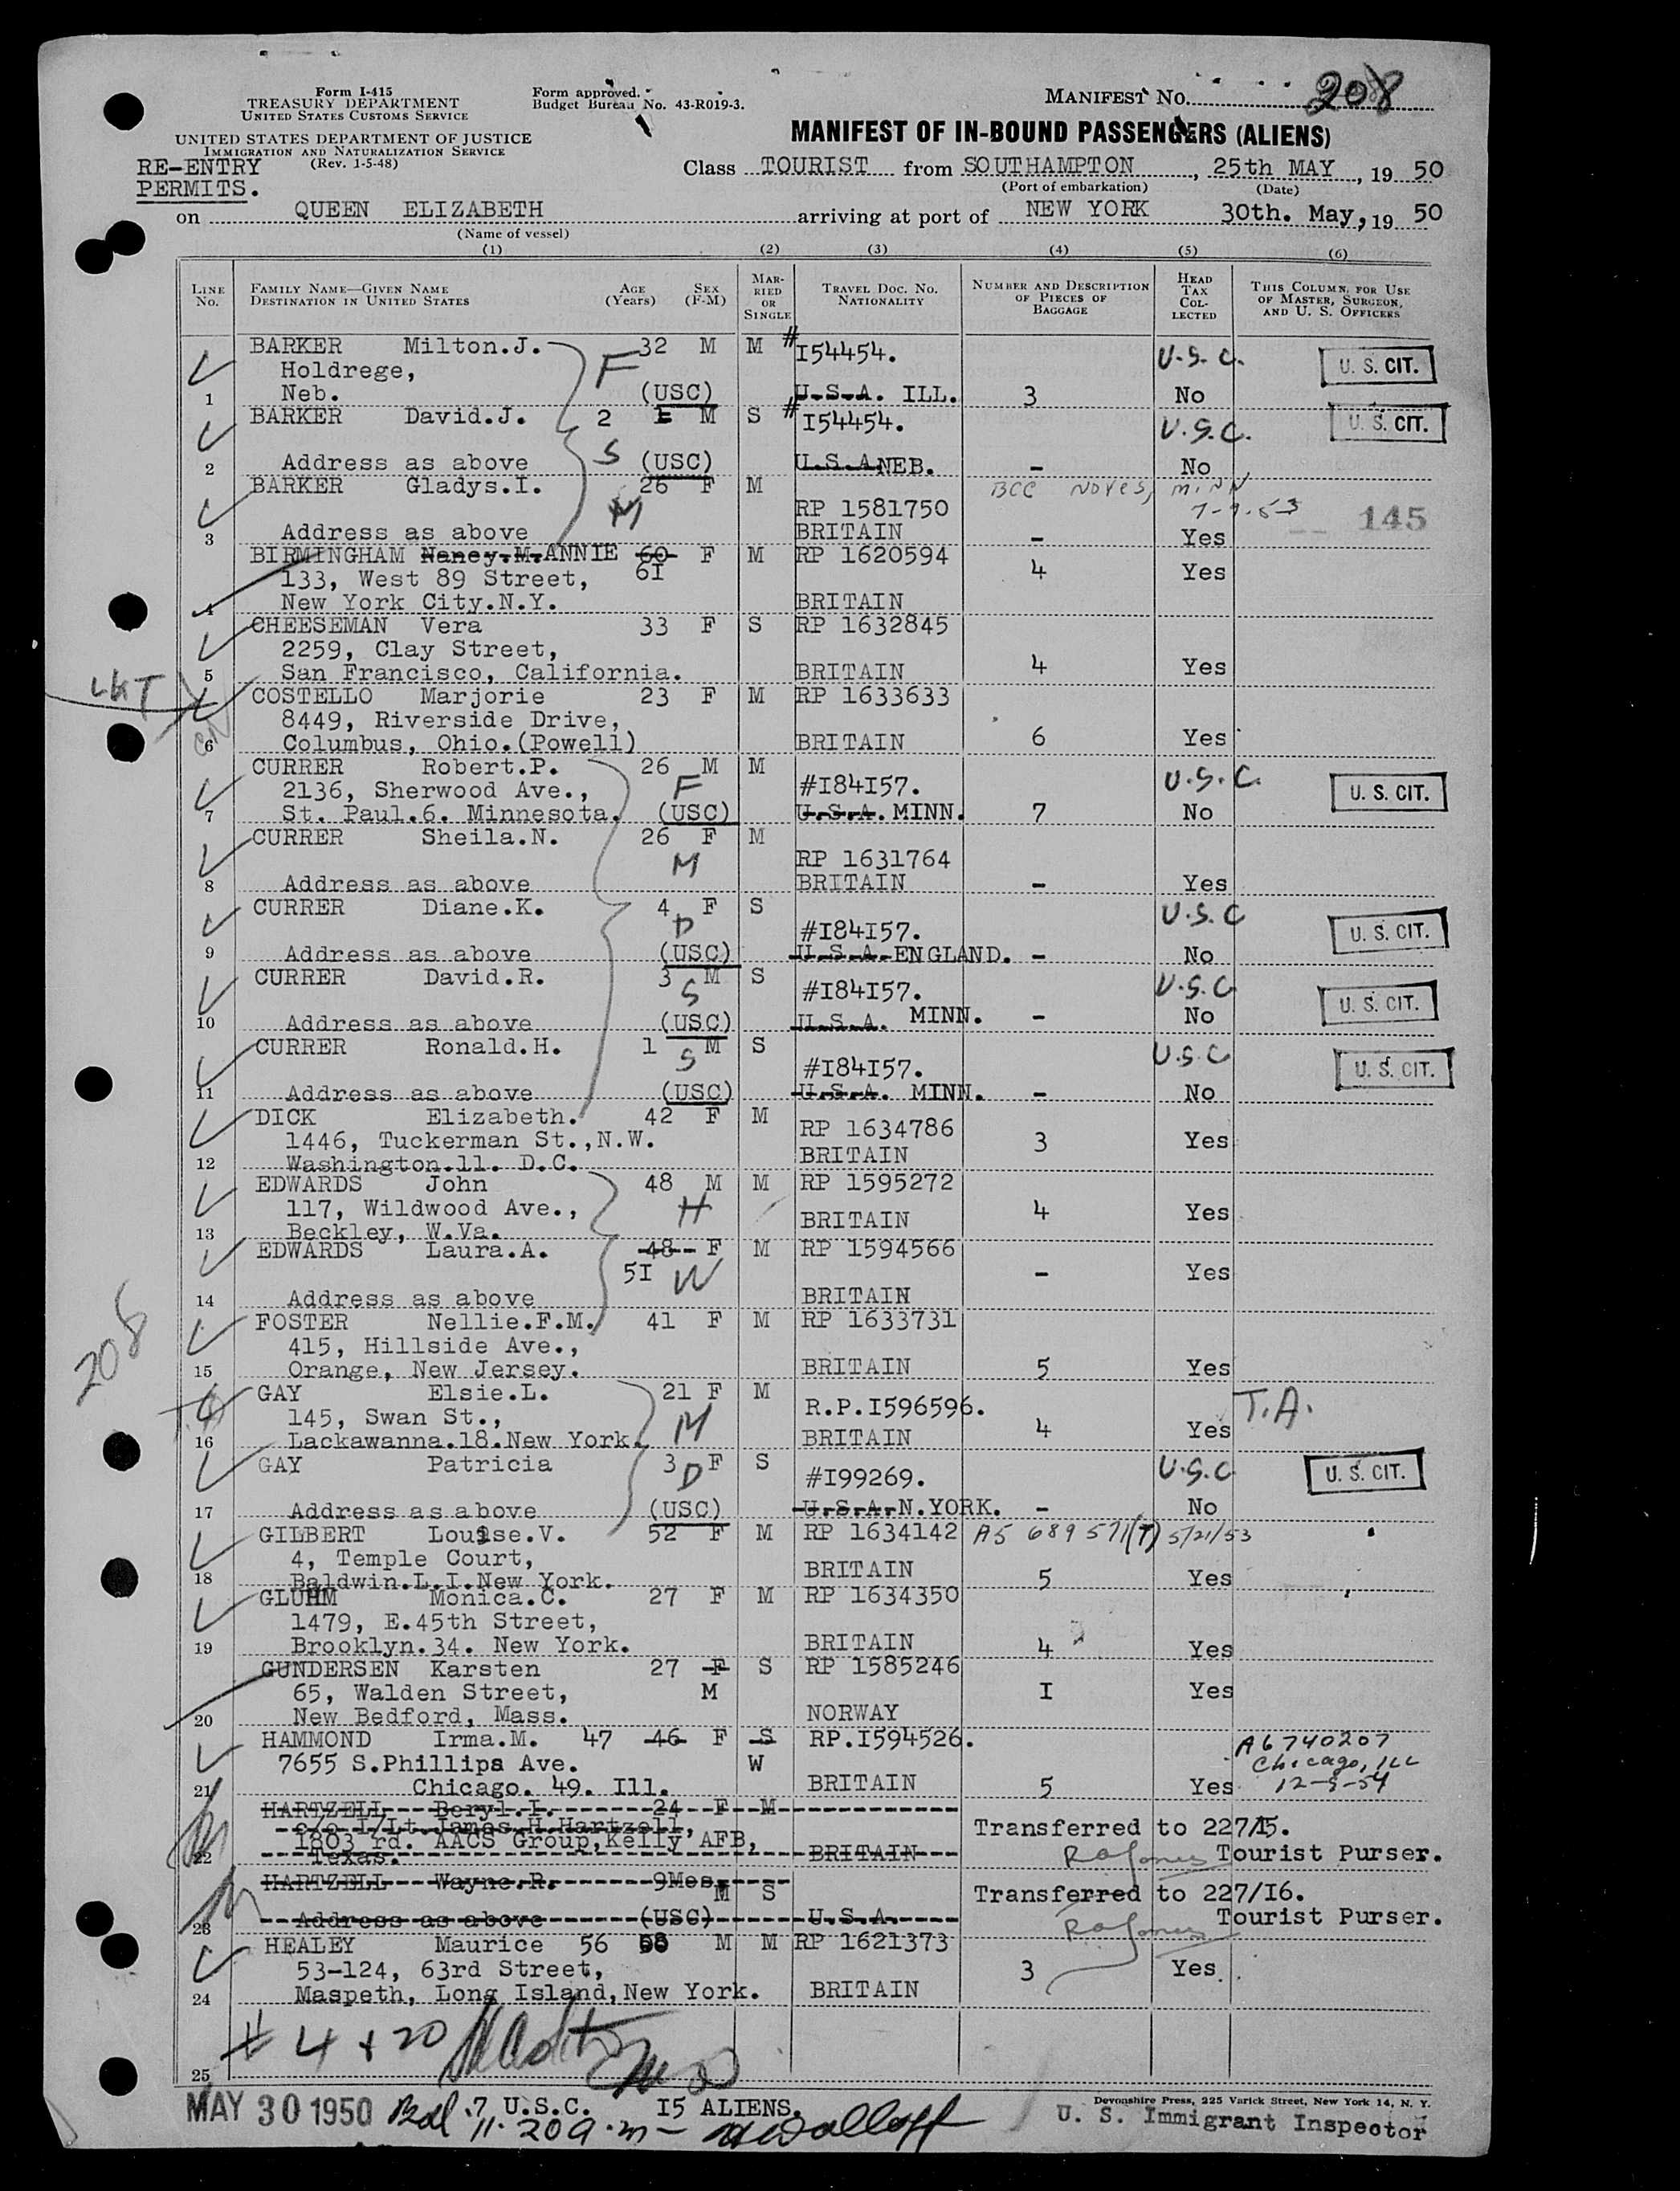 Form I-415
TREASURY DEPARTMENT
UNITED STATES CUSTOMS SERVICE
Form approved.
Budget Bureau No. 43-R019-3.
MANIFEST NO. 208
UNITED STATES DEPARTMENT OF JUSTICE
IMMIGRATION AND NATURALIZATION SERVICE
(Rev. 1-5-48)
RE-ENTRY
PERMITS.
MANIFEST OF IN-BOUND PASSENGERS (ALIENS)
Class TOURIST from SOUTHAMPTON, 25th MAY, 19 50
(Port of embarkation) (Date)
on QUEEN ELIZABETH arriving at port of NEW YORK 30th. May, 19 50
(Name of vessel)
(1) (2) (3) (4) (5) (6)
LINE NO. FAMILY NAME—GIVEN NAME DESTINATION IN UNITED STATES AGE (Years) SEX (F-M) MARRIED OR SINGLE TRAVEL DOC. NO. NATIONALITY NUMBER AND DESCRIPTION OF PIECES OF BAGGAGE HEAD TAX COLLECTED THIS COLUMN FOR USE OF MASTER, SURGEON, AND U. S. OFFICERS
BARKER Milton.J. 32 M M #I54454. U.S.C. U. S. CIT.
Holdrege, F
1 Neb. (USC) U.S.A. ILL. 3 No
BARKER David.J. 2 1 M S #I54454. U.S.C. U. S. CIT.
S
2 Address as above (USC) U.S.A NEB. - No
BARKER Gladys.I. 26 F M BCC Noyes, Minn
M RP 1581750 7-9-53 145
3 Address as above BRITAIN - Yes
BIRMINGHAM Nancy.M. ANNIE 60 F M RP 1620594
133, West 89 Street, 6I 4 Yes
4 New York City.N.Y. BRITAIN
CHEESEMAN Vera 33 F S RP 1632845
2259, Clay Street,
5 San Francisco, California. BRITAIN 4 Yes
LKT
COSTELLO Marjorie 23 F M RP 1633633
8449, Riverside Drive,
6 Columbus, Ohio.(Powell) BRITAIN 6 Yes
CURRER Robert.P. 26 M M U.S.C.
2136, Sherwood Ave., F #I84I57. U. S. CIT.
7 St. Paul.6. Minnesota. (USC) U.S.A. MINN. 7 No
CURRER Sheila.N. 26 F M
M RP 1631764
8 Address as above BRITAIN - Yes
CURRER Diane.K. 4 F S U.S.C
D #I84I57. U. S. CIT.
9 Address as above (USC) U.S.A. ENGLAND. - No
CURRER David.R. 3 M S U.S.C
S #I84I57. U. S. CIT.
10 Address as above (USC) U.S.A. MINN. - No
CURRER Ronald.H. 1 M S U.S.C
S #I84I57. U. S. CIT.
11 Address as above (USC) U.S.A. MINN. - No
DICK Elizabeth. 42 F M RP 1634786
1446, Tuckerman St.,N.W. BRITAIN 3 Yes
12 Washington.11. D.C.
EDWARDS John 48 M M RP 1595272
117, Wildwood Ave., H BRITAIN 4 Yes
13 Beckley, W.Va.
EDWARDS Laura.A. 48 F M RP 1594566
5I W - Yes
14 Address as above BRITAIN
FOSTER Nellie.F.M. 41 F M RP 1633731
415, Hillside Ave.,
15 Orange, New Jersey. BRITAIN 5 Yes
208
GAY Elsie.L. 21 F M R.P.I596596. T.A.
145, Swan St., M 4 Yes
16 Lackawanna.18.New York. BRITAIN
GAY Patricia 3 F S U.S.C
D #I99269. U. S. CIT.
17 Address as above (USC) U.S.A. N.YORK. - No
GILBERT Louise.V. 52 F M RP 1634142 A5 689 571(T) 5/21/53
4, Temple Court, BRITAIN
18 Baldwin.L.I.New York. 5 Yes
GLUHM Monica.C. 27 F M RP 1634350
1479, E.45th Street,
19 Brooklyn.34. New York. BRITAIN 4 Yes
GUNDERSEN Karsten 27 F S RP 1585246
65, Walden Street, M I Yes
20 New Bedford, Mass. NORWAY
HAMMOND Irma.M. 47 46 F S RP.I594526. A6740207
7655 S.Phillips Ave. W Chicago, Ill
21 Chicago. 49. Ill. BRITAIN 5 Yes 12-9-54
HARTZELL Beryl.I. 24 F M
c/o 1/Lt.James.H.Hartzell, Transferred to 227/I5.
1803 rd. AACS Group,Kelly AFB,
22 Texas. BRITAIN Tourist Purser.
HARTZELL Wayne.R. 9Mos. M S Transferred to 227/I6.
23 Address as above (USC) U.S.A. Tourist Purser.
HEALEY Maurice 56 M M RP 1621373
53-124, 63rd Street, 3 Yes
24 Maspeth, Long Island,New York. BRITAIN
# 4 + 20
25
MAY 30 1950 Bal 7 U.S.C. I5 ALIENS.
11.20 a.m
Devonshire Press, 225 Varick Street, New York 14, N. Y.
U. S. Immigrant Inspector